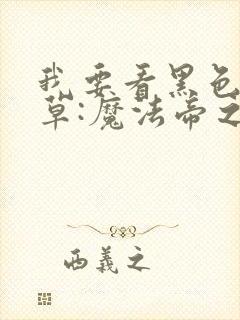 我要看黑色
草:魔法帝之
西義之